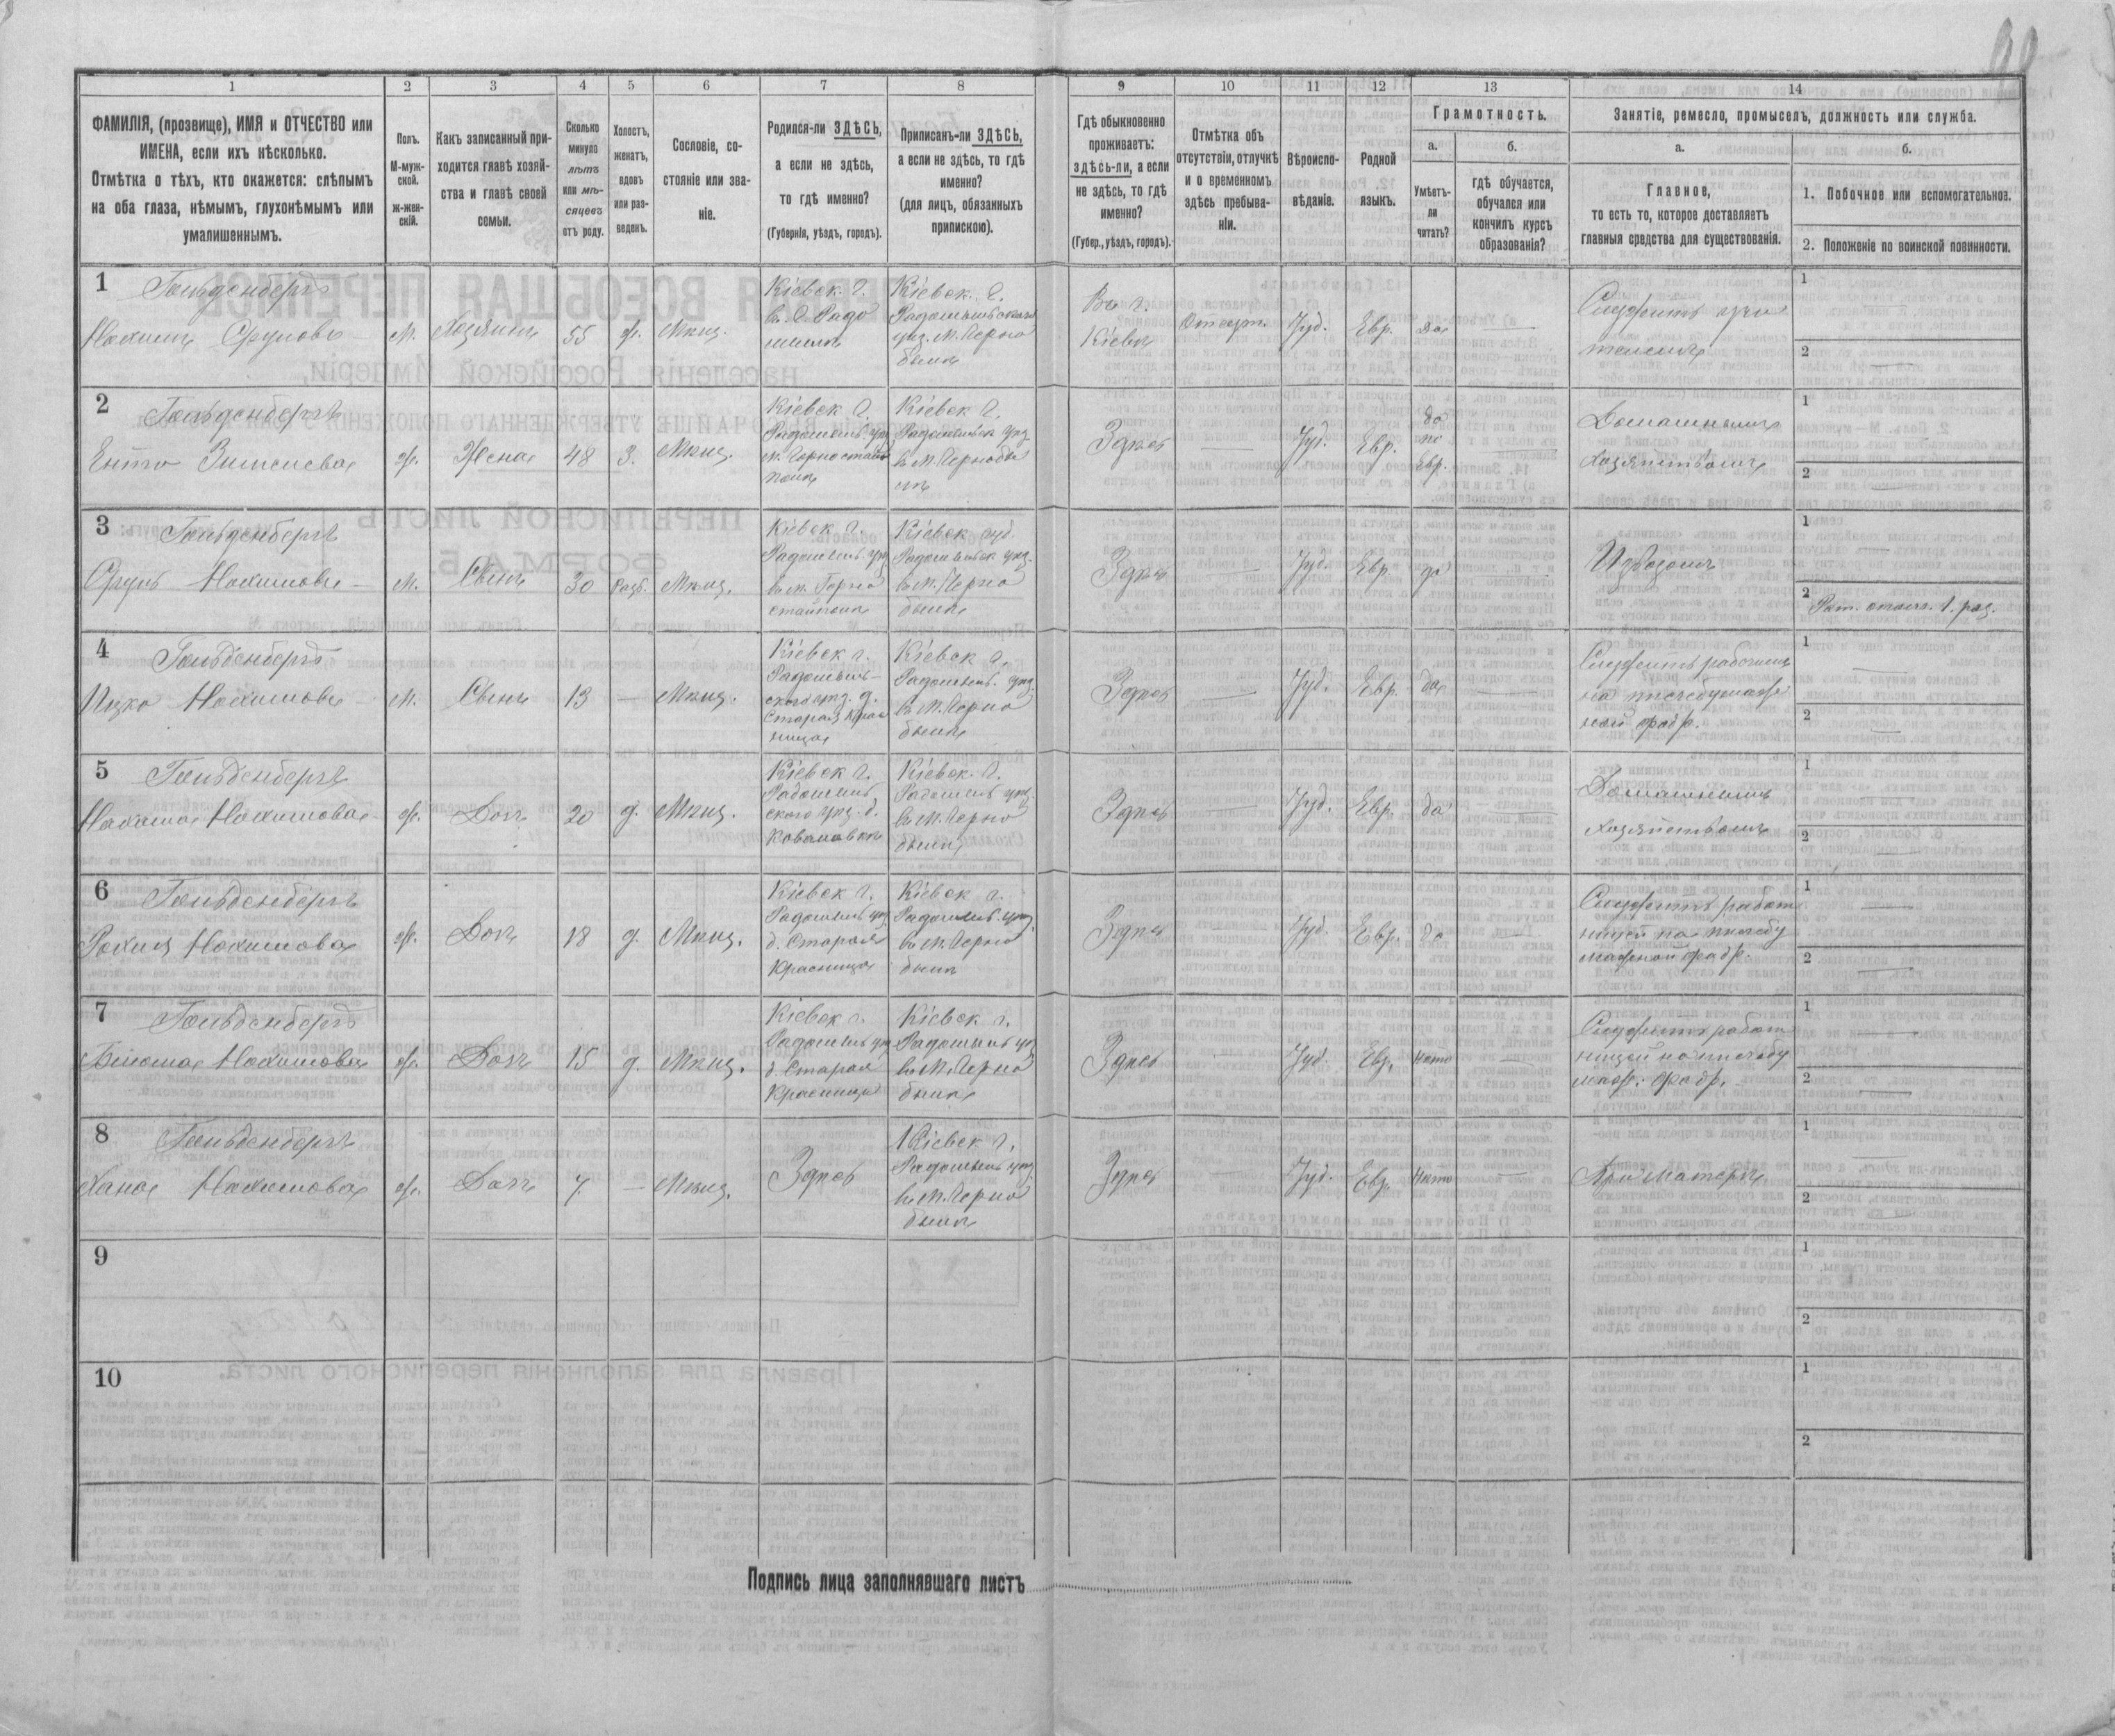 1 2 3 4 5 6 7 8 9 10 11 12 13 14
ФАМИЛІЯ, (прозвище), ИМЯ и ОТЧЕСТВО или
ИМЕНА, если ихъ нѣсколько.
Отмѣтка о тѣхъ, кто окажется: слѣпымъ
на оба глаза, нѣмымъ, глухонѣмымъ или
умалишеннымъ.
Полъ.
М-муж-
ской.
ж-жен-
скій.
Какъ записанный при-
ходится главѣ хозяй-
ства и главѣ своей
семьи.
Сколько
минуло
лѣтъ
или мѣ-
сяцевъ
отъ роду.
Холостъ,
женатъ,
вдовъ
или раз-
веденъ.
Сословіе, со-
стояніе или зва-
ніе.
Родился-ли ЗДѢСЬ,
а если не здѣсь,
то гдѣ именно?
(Губернія, уѣздъ, городъ).
Приписанъ-ли ЗДѢСЬ,
а если не здѣсь, то гдѣ
именно?
(для лицъ, обязанныхъ
припискою).
Гдѣ обыкновенно
проживаетъ:
здѣсь-ли, а если
не здѣсь, то гдѣ
именно?
(Губер., уѣздъ, городъ).
Отмѣтка объ
отсутствіи, отлучкѣ
и о временномъ
здѣсь пребыва-
ніи.
Вѣроиспо-
вѣданіе.
Родной
языкъ.
Грамотность.
а.
Умѣетъ-
ли
читать?
б.
гдѣ обучается,
обучался или
кончилъ курсъ
образованія?
Занятіе, ремесло, промыселъ, должность или служба.
а.
Главное,
то есть то, которое доставляетъ
главныя средства для существованія.
б.
1. Побочное или вспомогательное.
2. Положеніе по воинской повинности.
1 Гольденбергъ
Нахимъ Сруловъ
М. Хозяинъ 55 ж. Мѣщ.
Кіевск. г.
в. г. Радо
мыслѣ
Кіевск. г.
Радомысльскаго
уѣз. м. Черно
былѣ
Въ г.
Кіевѣ
Отсут. Іуд. Евр. да —
Служитъ
1
2 —
2 Гольденбергъ
ж. Жена 48 З. Мѣщ.
Кіевск г.
Радомысль. уѣз
м. Горностай
полѣ
Кіевск г.
Радомысльск уѣз
въ м. Чернобы
лѣ
Здѣсь — Іуд. Евр.
да
по
Евр.
Домашнимъ
хозяйствомъ
1
2 —
3 Гольденбергъ
Сруль Нахимовъ
М. Сынъ 30 Разв. Мѣщ.
Кіевск. г.
Радомысль уѣз
въ м. Горно
стайполѣ
Кіевск. губ.
Радомысльск уѣз.
въ м. Черно
былѣ
Здѣсь — Іуд. Евр. да
Извозомъ
1
2 Рат. ополч. 1. раз.
4 Гольденбергъ
Ицко Нахимовъ
М. Сынъ 13 — Мѣщ.
Кіевск г.
Радомысль-
скаго уѣз. д.
Старая Крас
ница
Кіевск г.
Радомысль. уѣз.
въ м. Черно
былѣ
Здѣсь — Іуд. Евр. да —
Служитъ рабочимъ
на писчебумаж
ной фабр.
1 —
2 —
5 Гольденбергъ
Нахимовна
ж. Дочь 20 д. Мѣщ.
Кіевск г.
Радомысль
скаго уѣз. д.
Ковалевкѣ
Кіевск. г.
Радомысль уѣз.
въ м. Черно
былѣ
Здѣсь — Іуд. Евр. да —
Домашнимъ
хозяйствомъ
1
2 —
6 Гольденбергъ
Рохля Нахимова
ж. Дочь 18 д. Мѣщ.
Кіевск г.
Радомысль уѣз.
д. Старая
Красница
Кіевск г.
Радомысль. уѣз.
въ м. Черно
былѣ
Здѣсь — Іуд. Евр. да —
Служитъ работ
ницей на писчебу
мажной фабр.
1 —
2 —
7 Гольденбергъ
Нахимова
ж. Дочь 15 д. Мѣщ.
Кіевск г.
Радомысль уѣз
д. Старая
Красница
Кіевск г.
Радомысль уѣз
въ м. Черно
былѣ
Здѣсь — Іуд. Евр. нѣтъ —
Служитъ работ
ницей на писчебу
маж. фабр.
1 —
2 —
8 Гольденбергъ
Хана Нахимова
ж. Дочь 7 — Мѣщ.
Здѣсь
Кіевск г.
Радомысль уѣз.
въ м. Черно
былѣ
Здѣсь — Іуд. Евр. нѣтъ —
При матери
1
2
9
1
2
10
1
2
Подпись лица заполнявшаго листъ